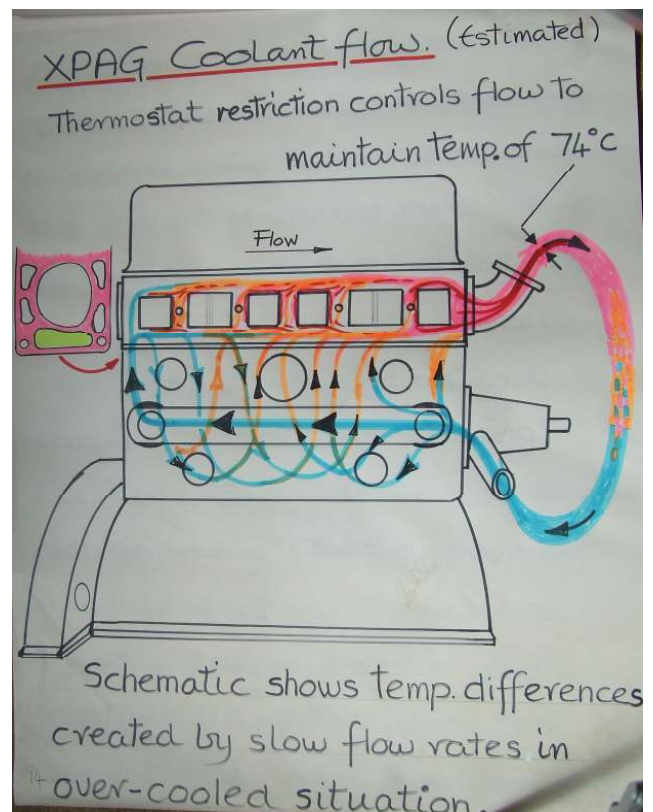 XPAG Coolant flow. (Estimated)
Thermostat restriction controls flow to
maintain temp. of 74°C
Flow
Schematic shows temp. differences
created by slow flow rates in
14
over-cooled situation.